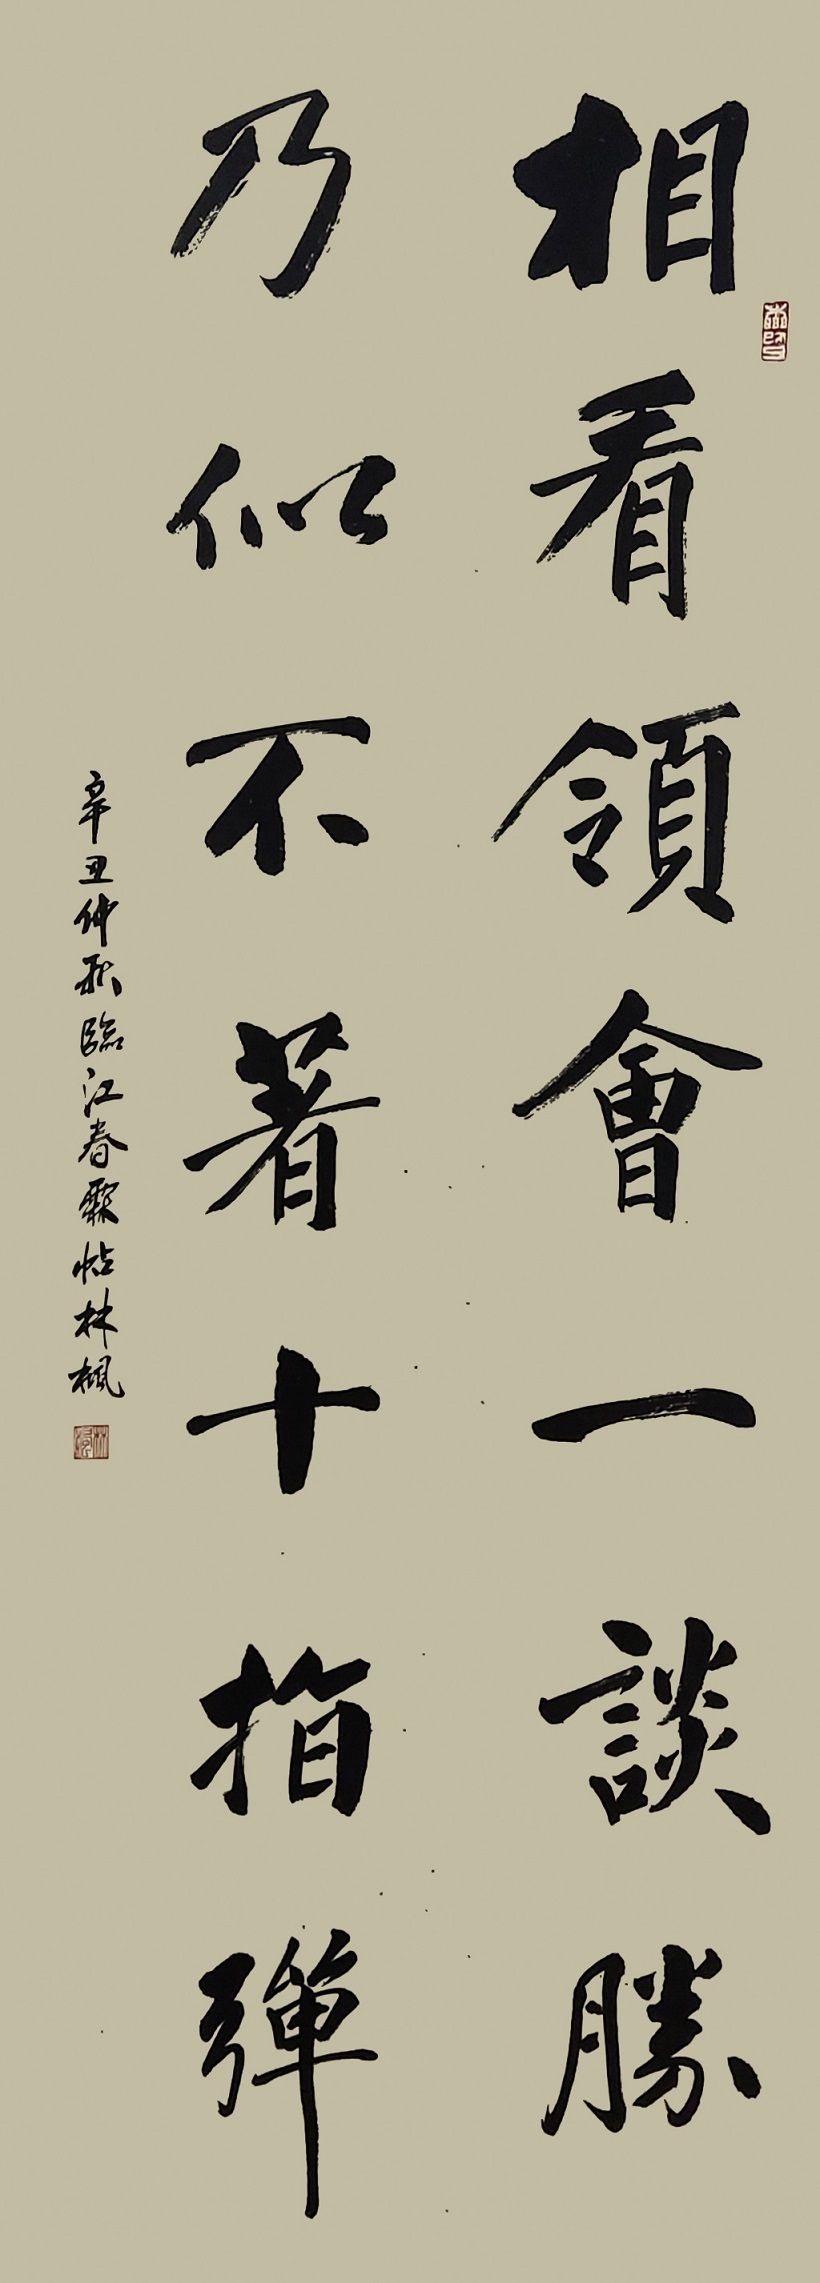 相看領會一談勝
乃似不著十指彈
辛丑仲秋臨江春霖帖林楓